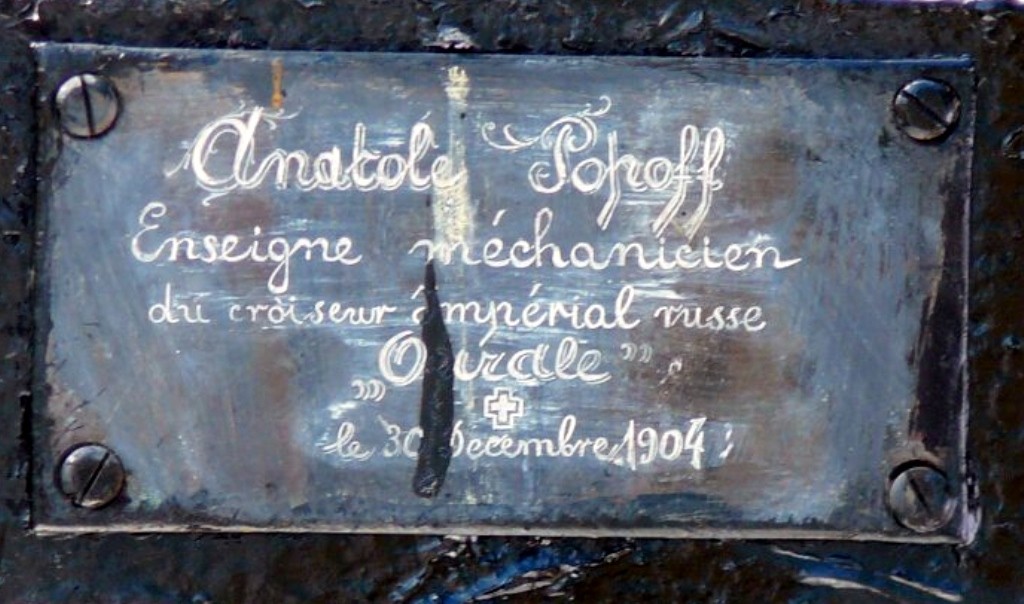 Anatole Popoff
Enseigne méchanicien
du croiseur impérial russe
le 30 Decembre 1904